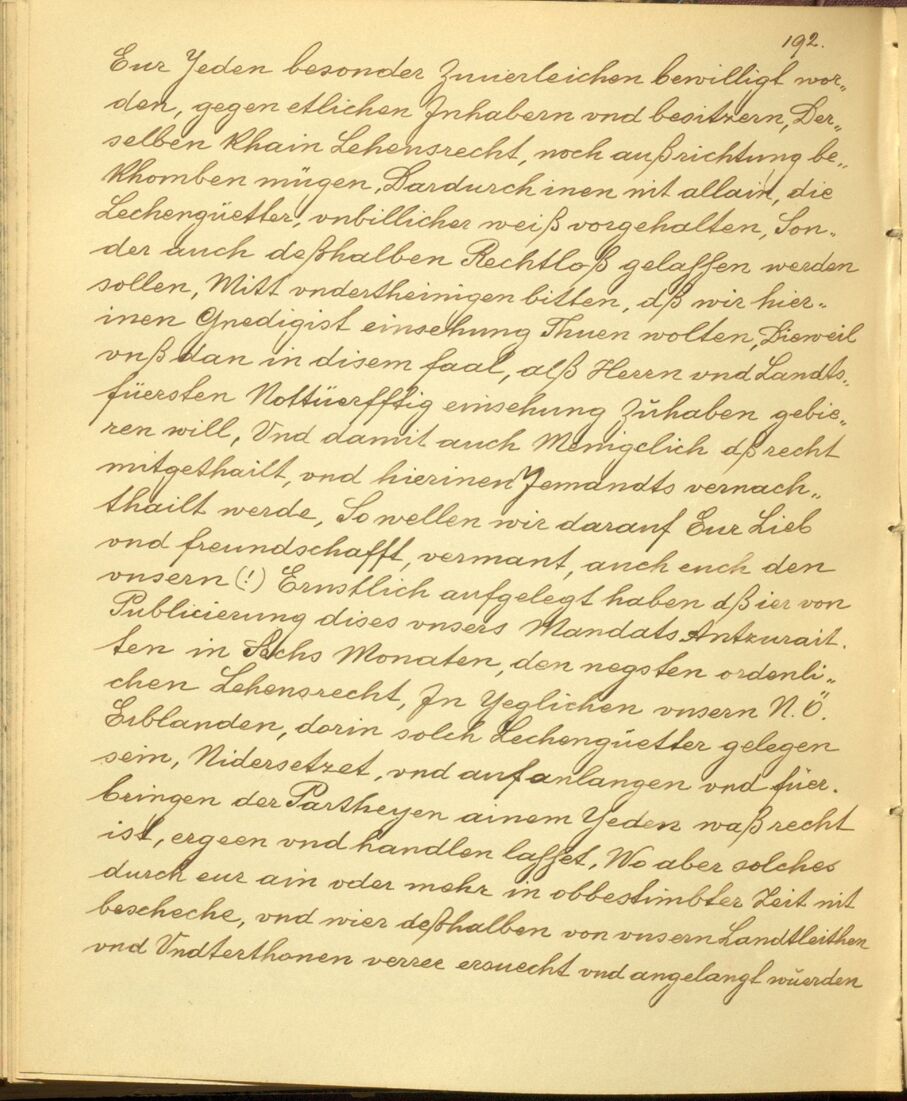 192.
Eur Yeden besonder Zuuerleichen bewilligt wor„
den, gegen etlichen Inhabern vnd besitzern, Der„
selben khain Lehensrecht, noch außrichtung be„
khomben mügen, Dardurch inen nit allain, die
Lechengüetter, vnbillicher weiß vorgehalten, Son„
der auch deßhalben Rechtloß gelassen werden
sollen, Mitt vndertheinigen bitten, dß wir hier„
inen Gnedigist einsehung Thuen wolten, Dieweil
vnß dan in disem faal, alß Herrn vnd Landts„
füersten Nottüerfftig einsehung Zuhaben gebie„
ren will, Vnd damit auch Menigclich dß recht
mitgethailt, vnd hierinen Jemandts vernach„
thailt werde, So wellen wir darauf Eur Lieb
vnd freundschafft, vermant, auch euch den
vnsern (!) Ernstlich aufgelegt haben dß ier von
Publicierung dises vnsers Mandats Antzurait.
ten in Sechs Monaten, den negsten ordenli„
chen Lehensrecht, In Yeglichen vnsern N.Ö.
Erblanden, dorin solch Lechengüetter gelegen
sein, Nidersetzet, vnd auf anlangen vnd füer.
bringen der Partheyen ainem Yeden waß recht
ist, ergeen vnd handlen lasset, Wo aber solches
durch eur ain oder mehr in obbestimbter Zeit nit
beschehe, vnd wier deßhalben von vnsern Landtleithen
vnd Vndterthonen verrer ersuecht vnd angelangt wüerden